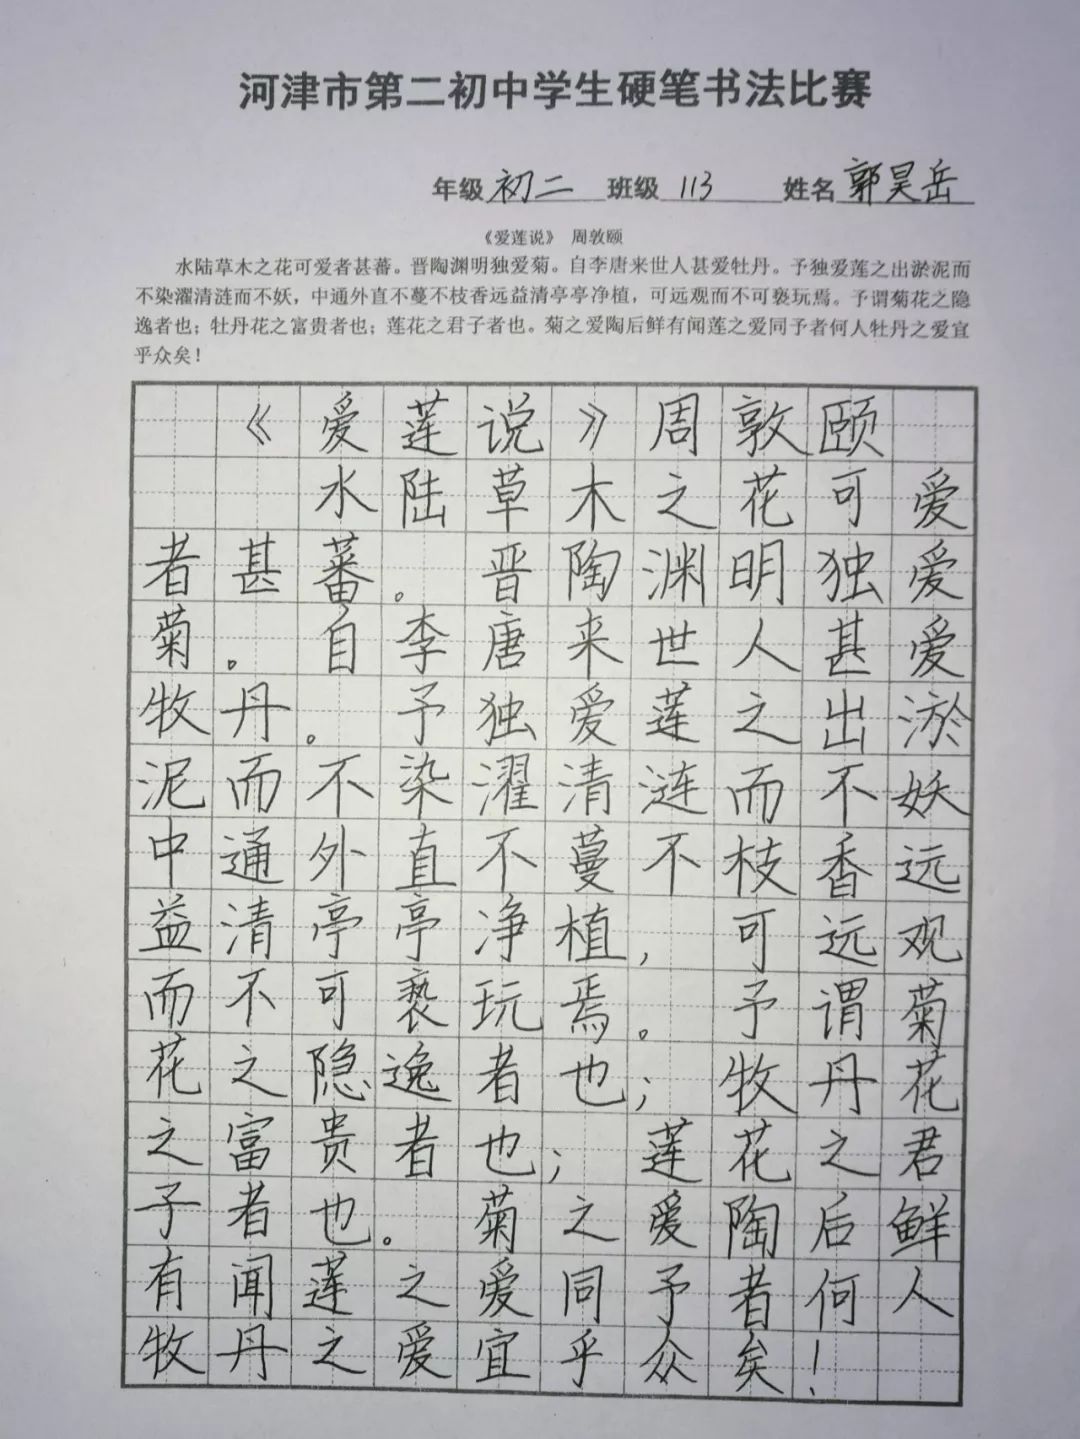 河津市第二初中学生硬笔书法比赛
年级 初二 班级 113 姓名 郭昊岳
《爱莲说》 周敦颐
水陆草木之花可爱者甚蕃。晋陶渊明独爱菊。自李唐来世人甚爱牡丹。予独爱莲之出淤泥而
不染濯清涟而不妖，中通外直不蔓不枝香远益清亭亭净植，可远观而不可亵玩焉。予谓菊花之隐
逸者也；牡丹花之富贵者也；莲花之君子者也。菊之爱陶后鲜有闻莲之爱同予者何人牡丹之爱宜
乎众矣！
《爱莲说》周敦颐
水陆草木之花可爱
者甚蕃。晋陶渊明独爱
菊。自李唐来世人甚爱
牧丹。予独爱莲之出淤
泥而不染濯清涟而不妖
中通外直不蔓不枝香远
益清亭亭净植，可远观
而不可亵玩焉。予谓菊
花之隐逸者也；牧丹花
之富贵者也；莲花之君
子者也。菊之爱陶后鲜
有闻莲之爱同予者何人
牧丹之爱宜乎众矣！